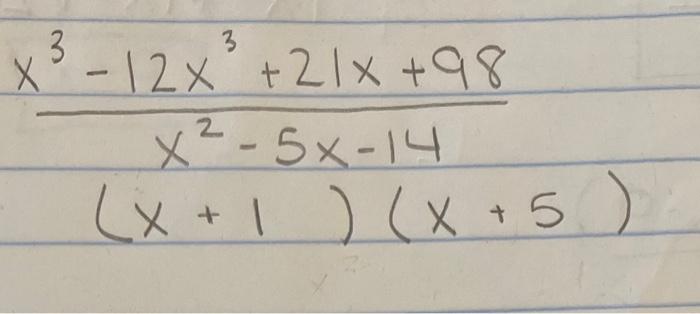 x³ - 12x³ + 21x + 98
x² - 5x - 14
(x + 1 ) (x + 5 )